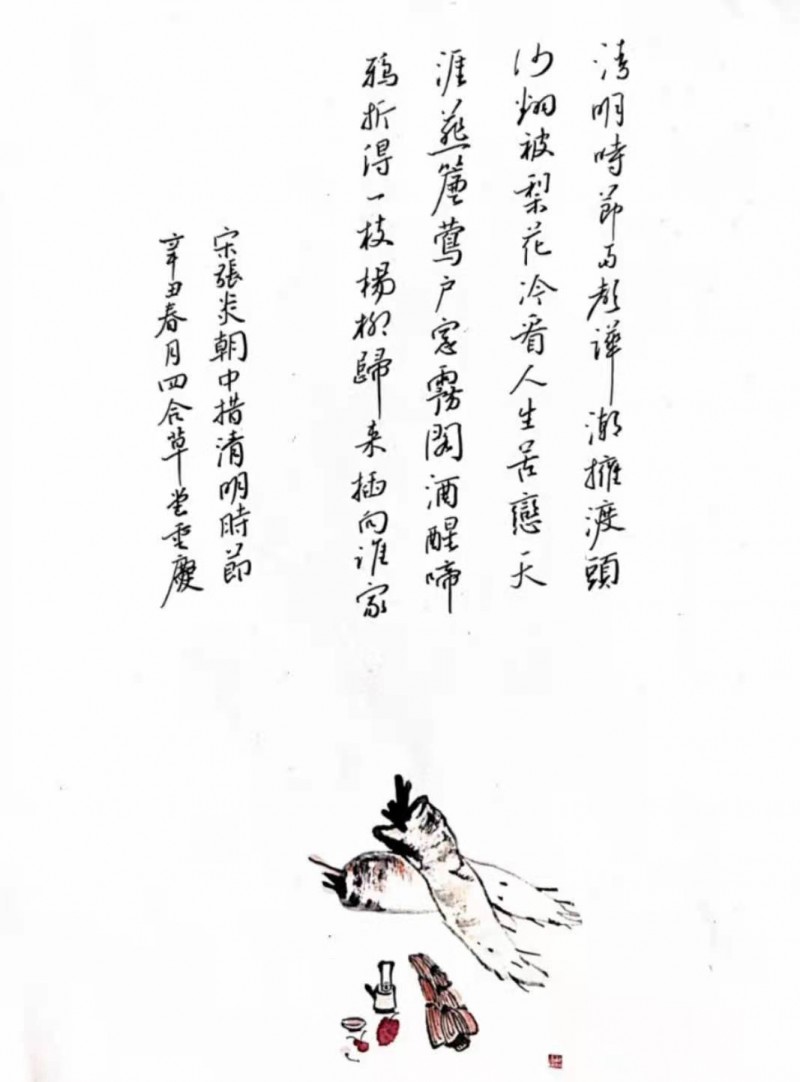 清明時節雨聲譁潮擁渡頭
沙翻被梨花冷看人生苦戀天
涯燕簾鶯户窓霧閣酒醒啼
鴉折得一枝楊柳歸来插向谁家
宋張炎朝中措清明時節
辛丑春月四合草堂